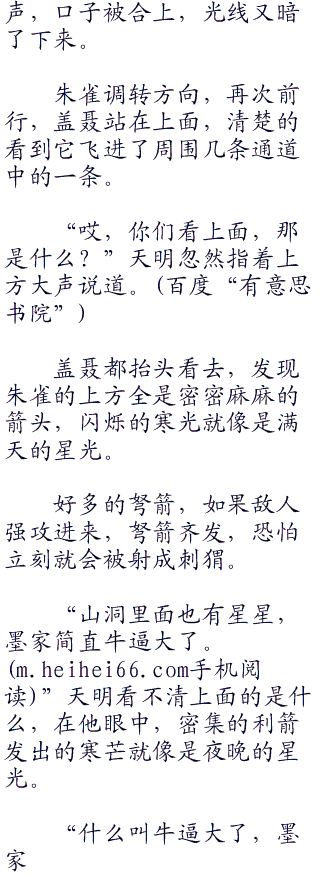 声，口子被合上，光线又暗
了下来。
朱雀调转方向，再次前
行，盖聂站在上面，清楚的
看到它飞进了周围几条通道
中的一条。
“哎，你们看上面，那
是什么？”天明忽然指着上
方大声说道。(百度“有意思
书院”)
盖聂都抬头看去，发现
朱雀的上方全是密密麻麻的
箭头，闪烁的寒光就像是满
天的星光。
好多的弩箭，如果敌人
强攻进来，弩箭齐发，恐怕
立刻就会被射成刺猬。
“山洞里面也有星星，
墨家简直牛逼大了。
(m.heihei66.com手机阅
读)”天明看不清上面的是什
么，在他眼中，密集的利箭
发出的寒芒就像是夜晚的星
光。
“什么叫牛逼大了，墨
家